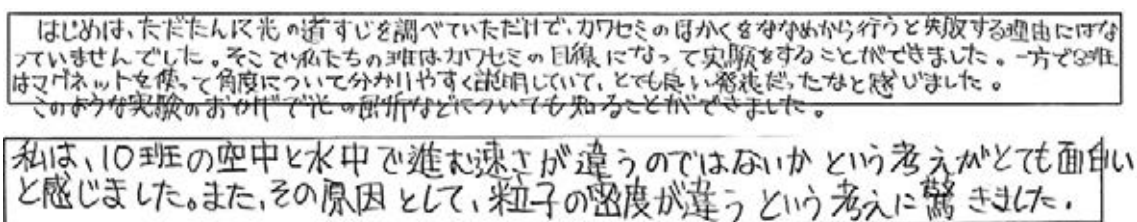 はじめは、ただたんに光の道すじを調べていただけで、カワセミのほかくをななめから行うと失敗する理由にはなな
っていませんでした。そこで私たちの班はカワセミの目線になって実験をすることができました。一方で9班
はマグネットを使って角度について分かりやすく説明していて、とても良い発表だったなと感じました。
このような実験のおかげで光の屈折などについても知ることができました。
私は、10班の空中と水中で進む速さが違うのではないかという考えがとても面白い
と感じました。また、その原因として、粒子の密度が違うという考えに驚きました。